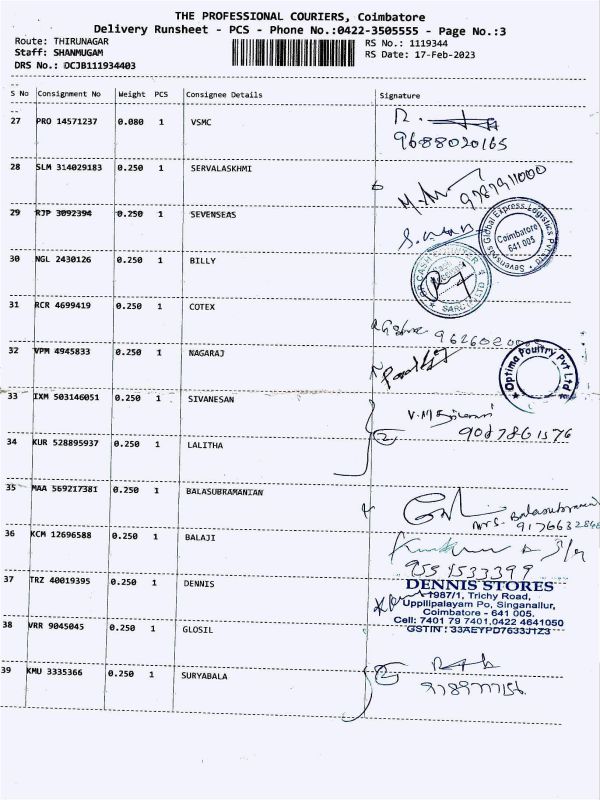 THE PROFESSIONAL COURIERS, Coimbatore
Delivery Runsheet - PCS - Phone No.:0422-3505555 - Page No.:3
Route: THIRUNAGAR
RS No.: 1119344
Staff: SHANMUGAM
RS Date: 17-Feb-2023
DRS No.: DCJB111934403
S No Consignment No Weight PCS Consignee Details Signature
27 PRO 14571237 0.080 1 VSMC
9688020165
28 SLM 314029183 0.250 1 SERVALASKHMI
29 RJP 3092394 0.250 1 SEVENSEAS
Global Express Logistics Pvt Ltd
Coimbatore
641 005
30 NGL 2430126 0.250 1 BILLY
31 RCR 4699419 0.250 1 COTEX
32 VPM 4945833 0.250 1 NAGARAJ
Optima Poultry Pvt Ltd
33 IXM 503146051 0.250 1 SIVANESAN
34 KUR 528895937 0.250 1 LALITHA
2
9087861576
35 MAA 569217381 0.250 1 BALASUBRAMANIAN
36 KCM 12696588 0.250 1 BALAJI
37 TRZ 40019395 0.250 1 DENNIS
DENNIS STORES
1987/1, Trichy Road,
Uppilipalayam Po, Singanallur,
Coimbatore - 641 005.
Cell: 7401 79 7401,0422 4641050
GSTIN : 33AEYPD7633J1Z3
38 VRR 9045045 0.250 1 GLOSIL
39 KMU 3335366 0.250 1 SURYABALA
2